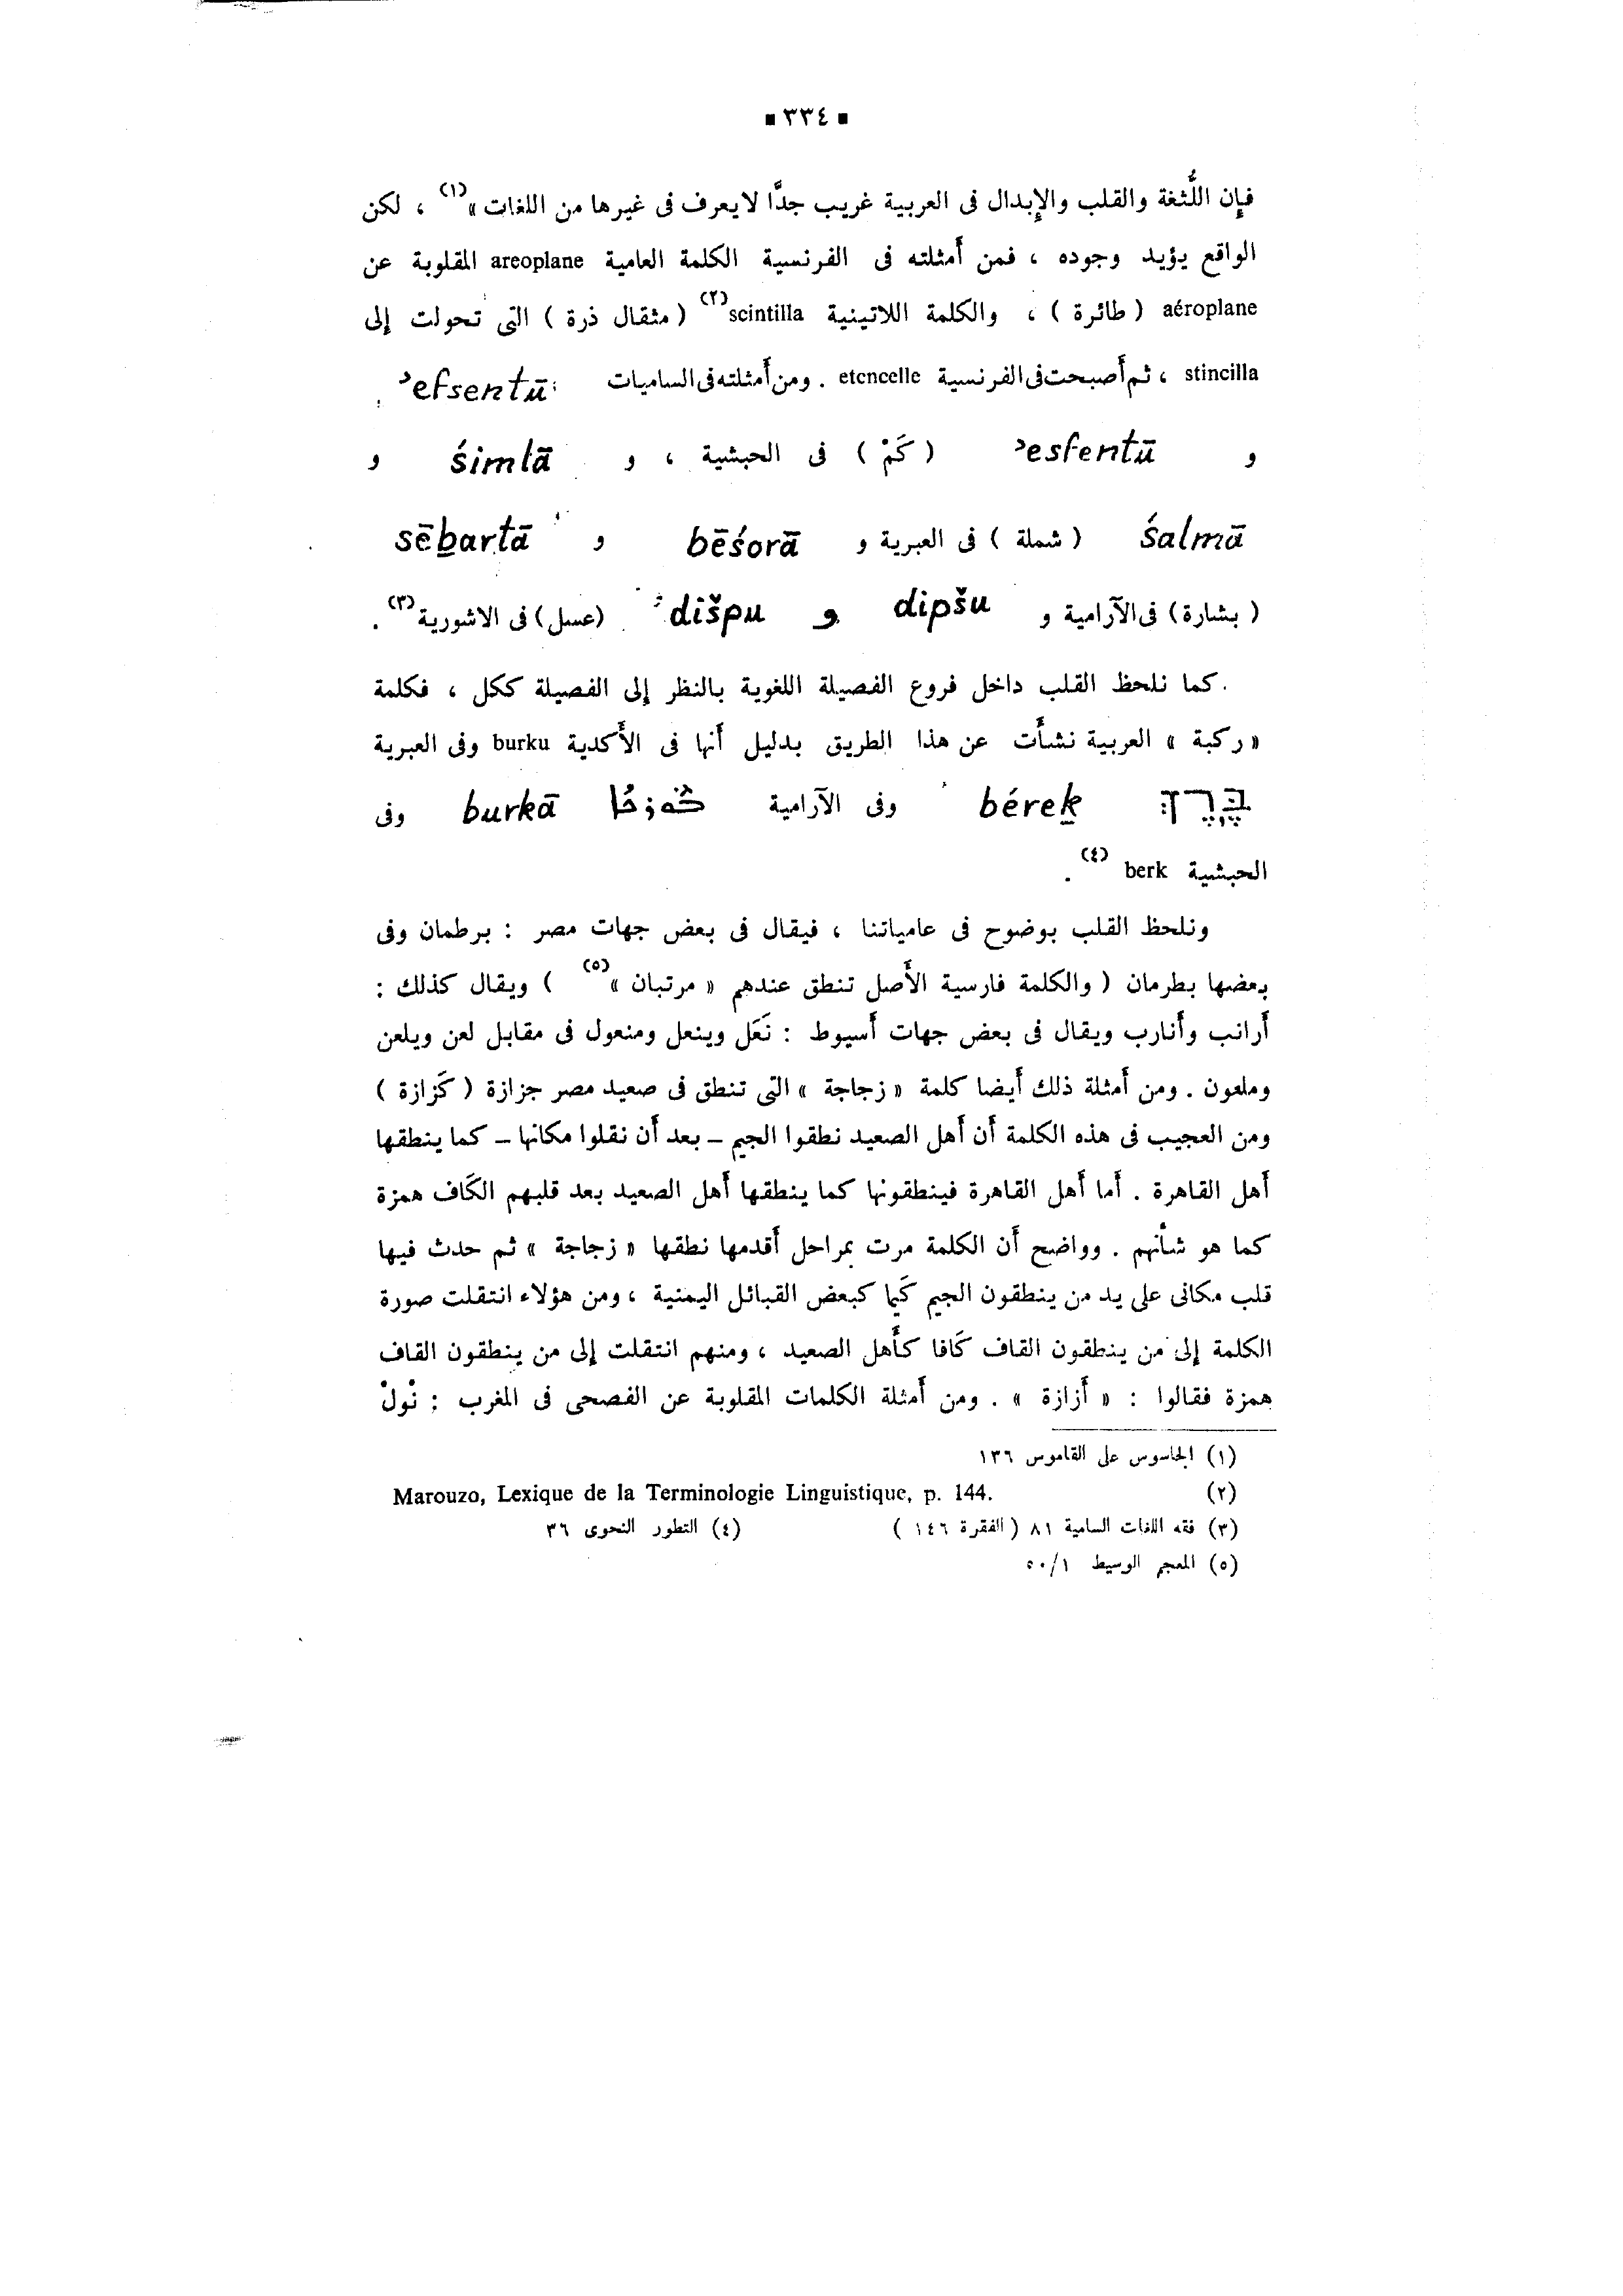 ▪ ٣٣٤ ▪
فإن اللُّثغة والقلب والإبدال فى العربية غريب جدًّا لا يعرف فى غيرها من اللغات » (١) ، لكن
الواقع يؤيد وجوده ، فمن أمثلته فى الفرنسية الكلمة العامية areoplane المقلوبة عن
aéroplane ( طائرة ) ، والكلمة اللاتينية scintilla (٢) ( مثقال ذرة ) التى تحولت إلى
stincilla ، ثم أصبحت فى الفرنسية etencelle . ومن أمثلته فى الساميات ʾefsentū
و ʾesfentū ( كَمْ ) فى الحبشية ، و śimlā و
śalmā ( شملة ) فى العبرية و bēśorā و sēḇartā
( بشارة ) فى الآرامية و dipšu و dišpu (عسل) فى الاشورية (٣) .
كما نلحظ القلب داخل فروع الفصيلة اللغوية بالنظر إلى الفصيلة ككل ، فكلمة
« ركبة » العربية نشأت عن هذا الطريق بدليل أنها فى الأكدية burku وفى العبرية
בֶּרֶךְ béreḵ وفى الآرامية burkā وفى
الحبشية berk (٤) .
ونلحظ القلب بوضوح فى عامياتنا ، فيقال فى بعض جهات مصر : برطمان وفى
بعضها بطرمان ( والكلمة فارسية الأصل تنطق عندهم « مرتبان » (٥) ) ويقال كذلك :
أرانب وأنارب ويقال فى بعض جهات أسيوط : نَعَل وينعل ومنعول فى مقابل لعن ويلعن
وملعون . ومن أمثلة ذلك أيضا كلمة « زجاجة » التى تنطق فى صعيد مصر جزازة ( كَزازة )
ومن العجيب فى هذه الكلمة أن أهل الصعيد نطقوا الجيم – بعد أن نقلوا مكانها – كما ينطقها
أهل القاهرة . أما أهل القاهرة فينطقونها كما ينطقها أهل الصعيد بعد قلبهم الكَاف همزة
كما هو شأنهم . وواضح أن الكلمة مرت بمراحل أقدمها نطقها « زجاجة » ثم حدث فيها
قلب مكانى على يد من ينطقون الجيم كَيما كبعض القبائل اليمنية ، ومن هؤلاء انتقلت صورة
الكلمة إلى من ينطقون القاف كَافا كأهل الصعيد ، ومنهم انتقلت إلى من ينطقون القاف
همزة فقالوا : « أزازة » . ومن أمثلة الكلمات المقلوبة عن الفصحى فى المغرب : نْولْ
(١) الجاسوس على القاموس ١٣٦
(٢) Marouzo, Lexique de la Terminologie Linguistique, p. 144.
(٣) فقه اللغات السامية ٨١ ( الفقرة ١٤٦ ) (٤) التطور النحوى ٣٦
(٥) المعجم الوسيط ٥٠/١